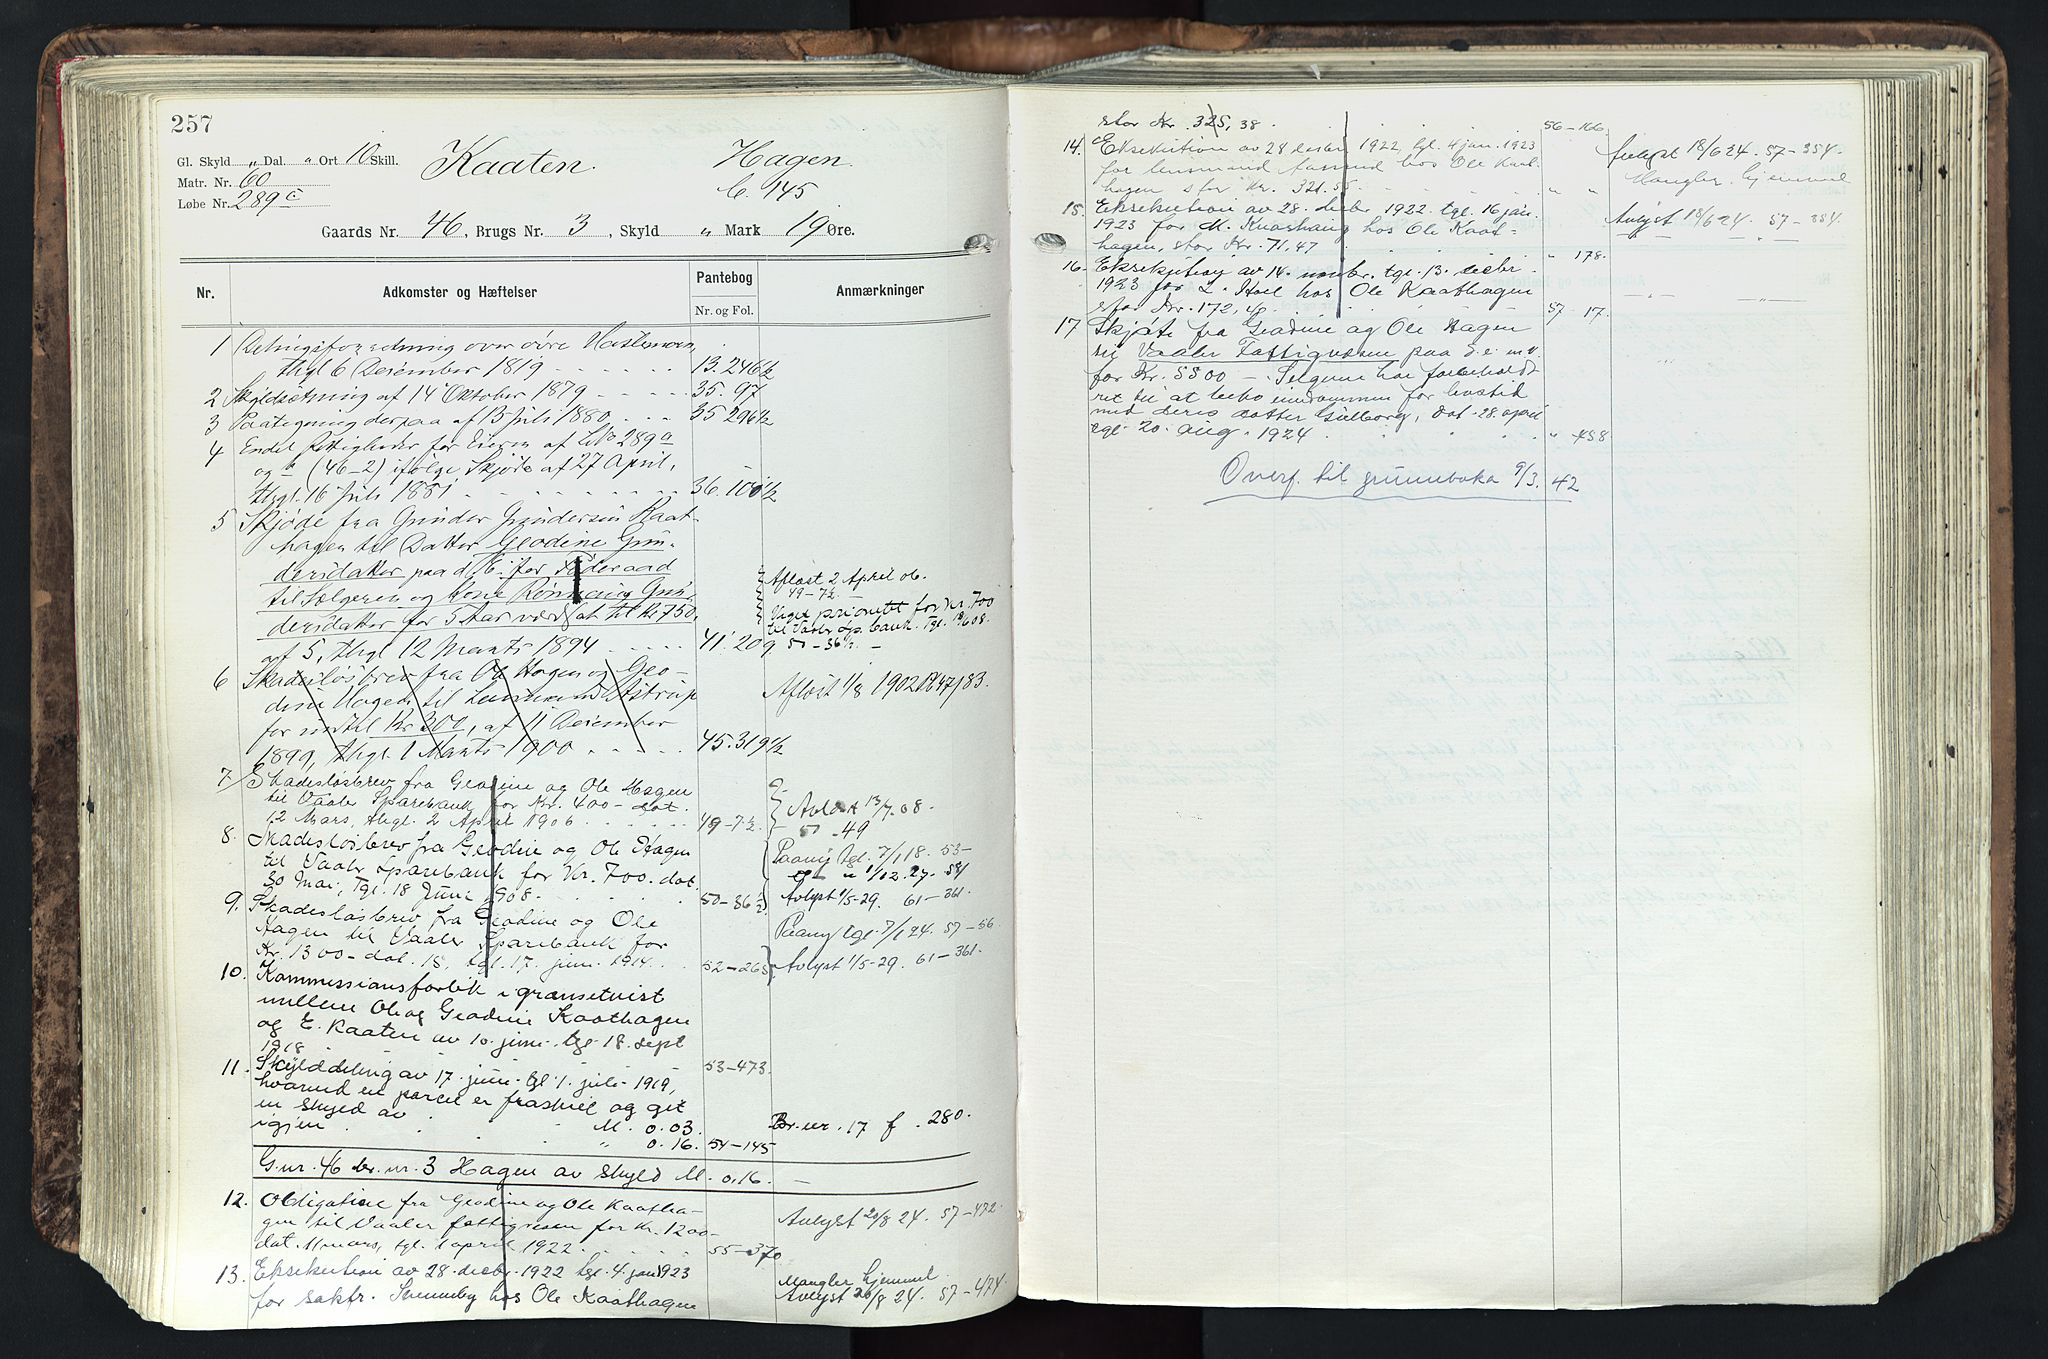 257
Gl. Skyld „ Dal. „ Ort 10 Skill.
Matr. Nr. 60
Løbe Nr. 289 c
Kaaten. Hagen.
C. 145
Gaards Nr. 46, Brugs Nr. 3, Skyld „ Mark 19 Øre.
Nr. Adkomster og Hæftelser Pantebog Nr. og Fol. Anmærkninger
1 over øvre
thgl 6 December 1819 13. 246½
2 Skyldsætning af 14 Oktober 1879 35. 97
3 Paategning derpaa af 13 Juli 1880 35 296½
4 Endel Rettigheder for Eieren af L№ 289 a
og b (46-2) ifølge Skjøde af 27 April,
thgl. 16 Juli 1881 36. 101½
5 Skjøde fra Gunder Gundersen Kaat-
hagen til Datter Geodine Gun-
dersdatter paa d. E. for Føderaad
til Sælgeren og Kone Rønnaug Gun-
dersdatter for 5 Aar værdsat til Kr 750,
af 5, thgl 12 Marts 1894 41. 209
Afløst 2 April 06.
49-7½.
Veget prioritet for Kr. 700
til Vaaler Sp.bank. Tgl. 18/6 08.
50-36½. -
6 Skadesløsbrev fra Ole Hagen og Geo-
dine Hagen til Lensmand Astrup
for indtil Kr 300, af 11 December
1899, thgl. 1 Marts 1900 45. 319½
Afløst 1/8 1902 47/83.
7 Skadesløsbrev fra Geodine og Ole Hagen
til Vaaler Sparebank for Kr. 400 - dat.
12 Mars, thgl. 2 April 1906 49-7½.
Avløst 13/7. 08.
50-49
8. Skadesløsbrev fra Geodine og Ole Hagen
til Vaaler Sparebank for Kr. 700. dat.
30 Mai, tgl. 18 Juni 1908. 50-36½
Paany tgl. 7/1 18. 53-
1/12. 27.
Avlyst 1/5-29. 61-361.
9. Skadesløsbrev fra Geodine og Ole
Hagen til Vaaler Sparebank for
Kr. 1300 - dat. 15, tgl. 17. juni 1914. 52-265
Paany tgl. 7/1 24. 57-56.
Avlyst 1/5-29. 61-361.
10. Kommissionsforlik i grænsetvist
mellem Ole og Geodine Kaathagen
og E. Kaaten av 10. juni tgl. 18. sept
1918 53-473.
11. Skylddeling av 17. juni tgl. 1. juli 1919,
hvorved en parcel er fraskilt og git
en skyld av M. 0.03. Br. nr. 17 f. 280.
igjen „ 0.16. 54-145
G.nr. 46 br. nr. 3 Hagen av skyld M. 0.16. -
12. Obligation fra Geodine og Ole Kaatha-
gen til Vaaler fattigvesen for Kr. 1200 -
dat. mars, tgl. 1 april 1922. 55-370
Avlyst 20/8 24. 57-472.
13. Eksekution av 28. decbr. 1922 tgl. 4. jan 1923
for sakfr. Svenneby hos Ole Kaathagen
Mangler hjemmel.
Avlyst 20/8 24. 57-474.
stor Kr. 325, 38. 56-166
14. Eksekution av 28 decbr. 1922, tgl. 4 jan. 1923
for lensmand hos Ole Kaat-
hagen stor Kr. 321.55 „ „
Avlyst 18/6 24. 57-354.
Mangler hjemmel
15. Eksekution av 28. decbr. 1922. tgl. 16 jan.
1923 for M. Knashaug hos Ole Kaat-
hagen, stor Kr. 71,47 „ 178.
Avlyst 18/6 24. 57-354.
16. Eksekution av 14. novbr. tgl. 13. decbr.
1923 for L. Hoel hos Ole Kaathagen
stor Kr. 172,46. 57 17.
17 Skjøte fra Geodine og Ole Hagen
til Vaaler Fattigvæsen paa d. e. m.v.
for Kr. 5500 - Selgerne har forbeholdt
ret til at bebo eiendommen for livstid
med deres datter Gulborg, dat. 28. april
tgl. 20. aug. 1924. „ 458
Overf. til grunnboka 9/3. 42